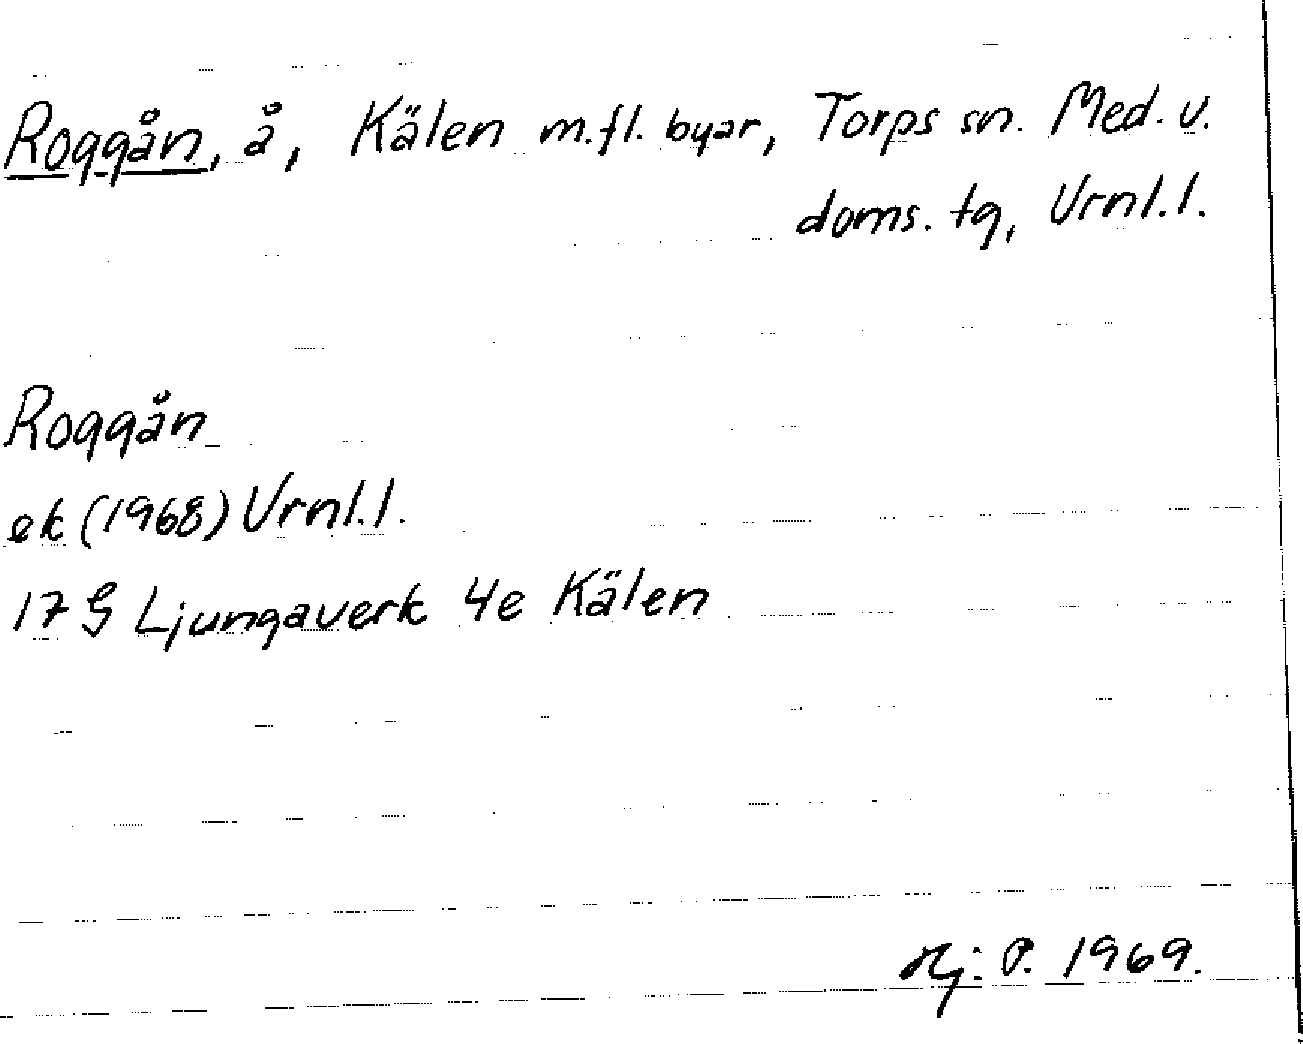 Roggån, å, Kälen m.fl. byar, Torps sn. Med. v.
doms. tg, Vrnl.l.
Roggån
ek (1968) Vrnl.l.
17 G Ljungaverk 4e Kälen
Hj: P. 1969.